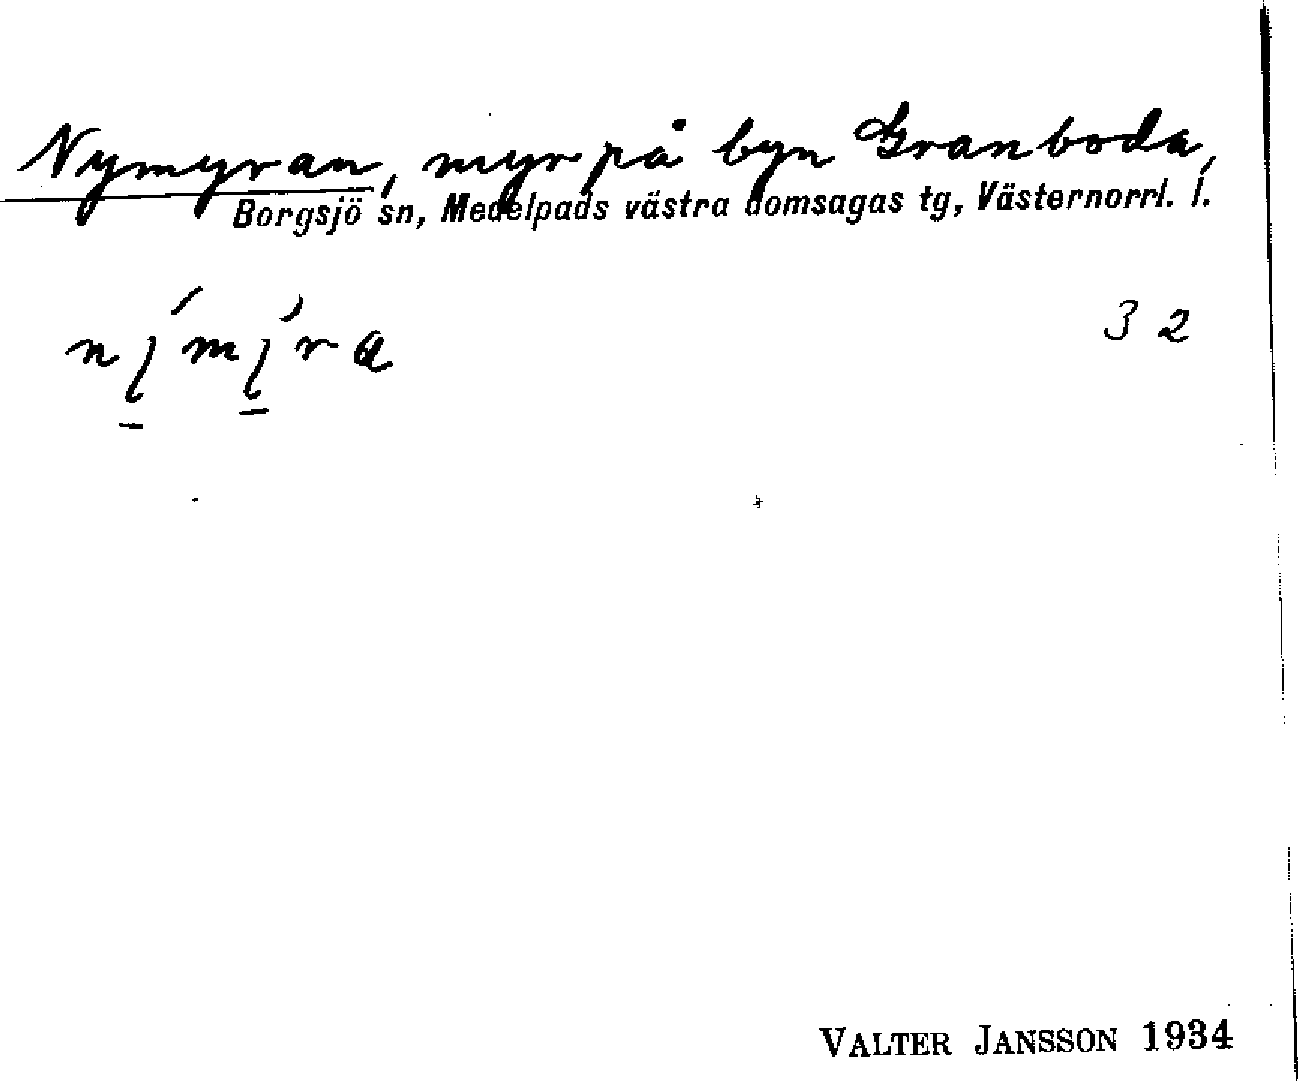 Nymyran, myr på byn Granboda,
Borgsjö sn, Medelpads västra domsagas tg, Västernorrl. l.
32
VALTER JANSSON 1934